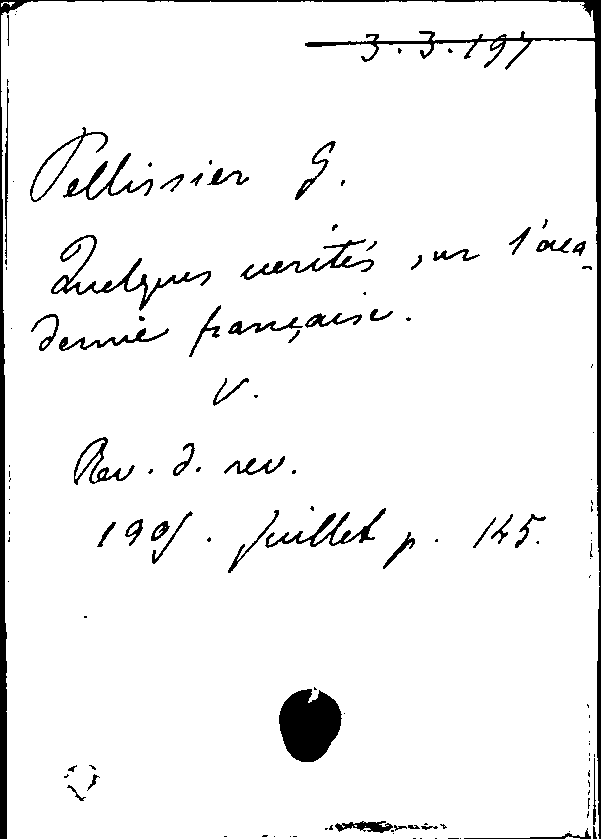 3.3.197
Pellissier G.
Quelques verités sur l'aca-
demie française.
V.
Rev. d. rev.
1905. Juillet p. 145.